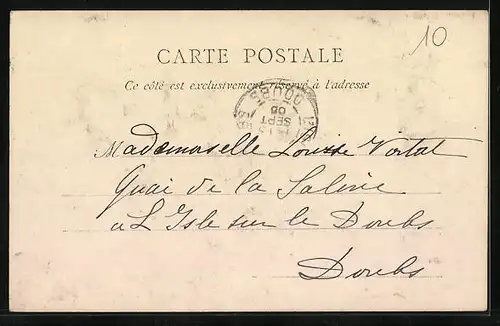 10
CARTE POSTALE
Ce côté est exclusivement réservé à l'adresse
SEPT
05
Mademoiselle Louise
Quai de la Saline
à L'Isle sur le Doubs
Doubs